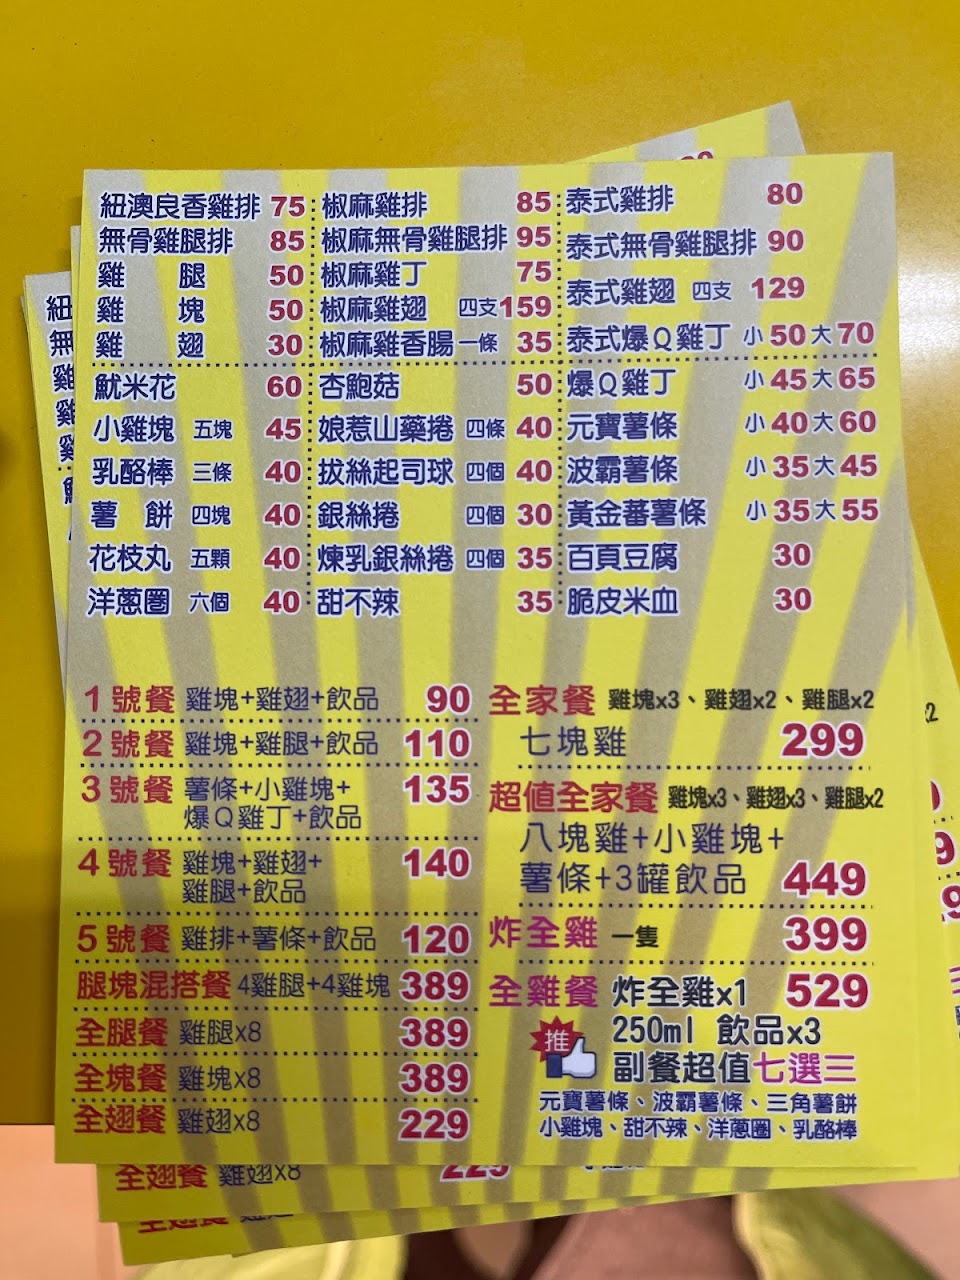 紐澳良香雞排 75
無骨雞腿排 85
雞腿 50
雞塊 50
雞翅 30
魷米花 60
小雞塊 五塊 45
乳酪棒 三條 40
薯餅 四塊 40
花枝丸 五顆 40
洋蔥圈 六個 40
椒麻雞排 85
椒麻無骨雞腿排 95
椒麻雞丁 75
椒麻雞翅 四支 159
椒麻雞香腸 一條 35
杏鮑菇 50
娘惹山藥捲 四條 40
拔絲起司球 四個 40
銀絲捲 四個 30
煉乳銀絲捲 四個 35
甜不辣 35
泰式雞排 80
泰式無骨雞腿排 90
泰式雞翅 四支 129
泰式爆Q雞丁 小 50 大 70
爆Q雞丁 小 45 大 65
元寶薯條 小 40 大 60
波霸薯條 小 35 大 45
黃金蕃薯條 小 35 大 55
百頁豆腐 30
脆皮米血 30
1號餐 雞塊+雞翅+飲品 90
2號餐 雞塊+雞腿+飲品 110
3號餐 薯條+小雞塊+ 135
爆Q雞丁+飲品
4號餐 雞塊+雞翅+ 140
雞腿+飲品
5號餐 雞排+薯條+飲品 120
腿塊混搭餐 4雞腿+4雞塊 389
全腿餐 雞腿x8 389
全塊餐 雞塊x8 389
全翅餐 雞翅x8 229
全家餐 雞塊x3、雞翅x2、雞腿x2
七塊雞 299
超值全家餐 雞塊x3、雞翅x3、雞腿x2
八塊雞+小雞塊+
薯條+3罐飲品 449
炸全雞 一隻 399
全雞餐 炸全雞x1 529
推 250ml 飲品x3
副餐超值七選三
元寶薯條、波霸薯條、三角薯餅
小雞塊、甜不辣、洋蔥圈、乳酪棒
全翅餐 雞翅x8 229